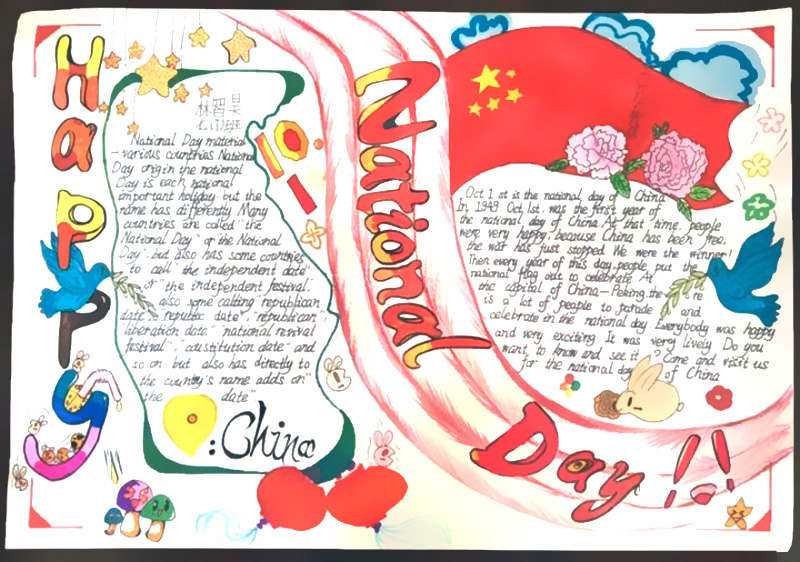 Happy
林智昊
七(1)班
National Day material
-various countries National
Day origin the national
Day is each national
important holiday but the
name has differently Many
countries are called "the
National Day" or the National
Day" but also has some countries
to call" the independent date"
or" the independent festival"
also some calling republican
date "republic date", republican"
liberation date" national revival
festival", "coustitution date" and
so on but also has directly to
the country's name adds on"
the date"
:China
National
Day!!
Oct 1 st is the national day of China
In 1949 Oct,1st was the first year of
the national day of China.At that time. people
were very happy, because China has been free,
the war has just stopped We were the winner!
Then every year of this day,people put the
national flag out to celebrate At
the capital of China-Peking.the re
is a lot of people to parade and
celebrate in the national day Everybody was happy
and very exciting It was very lively Do you
want to know and see it? Come and visit us
for the national day of China